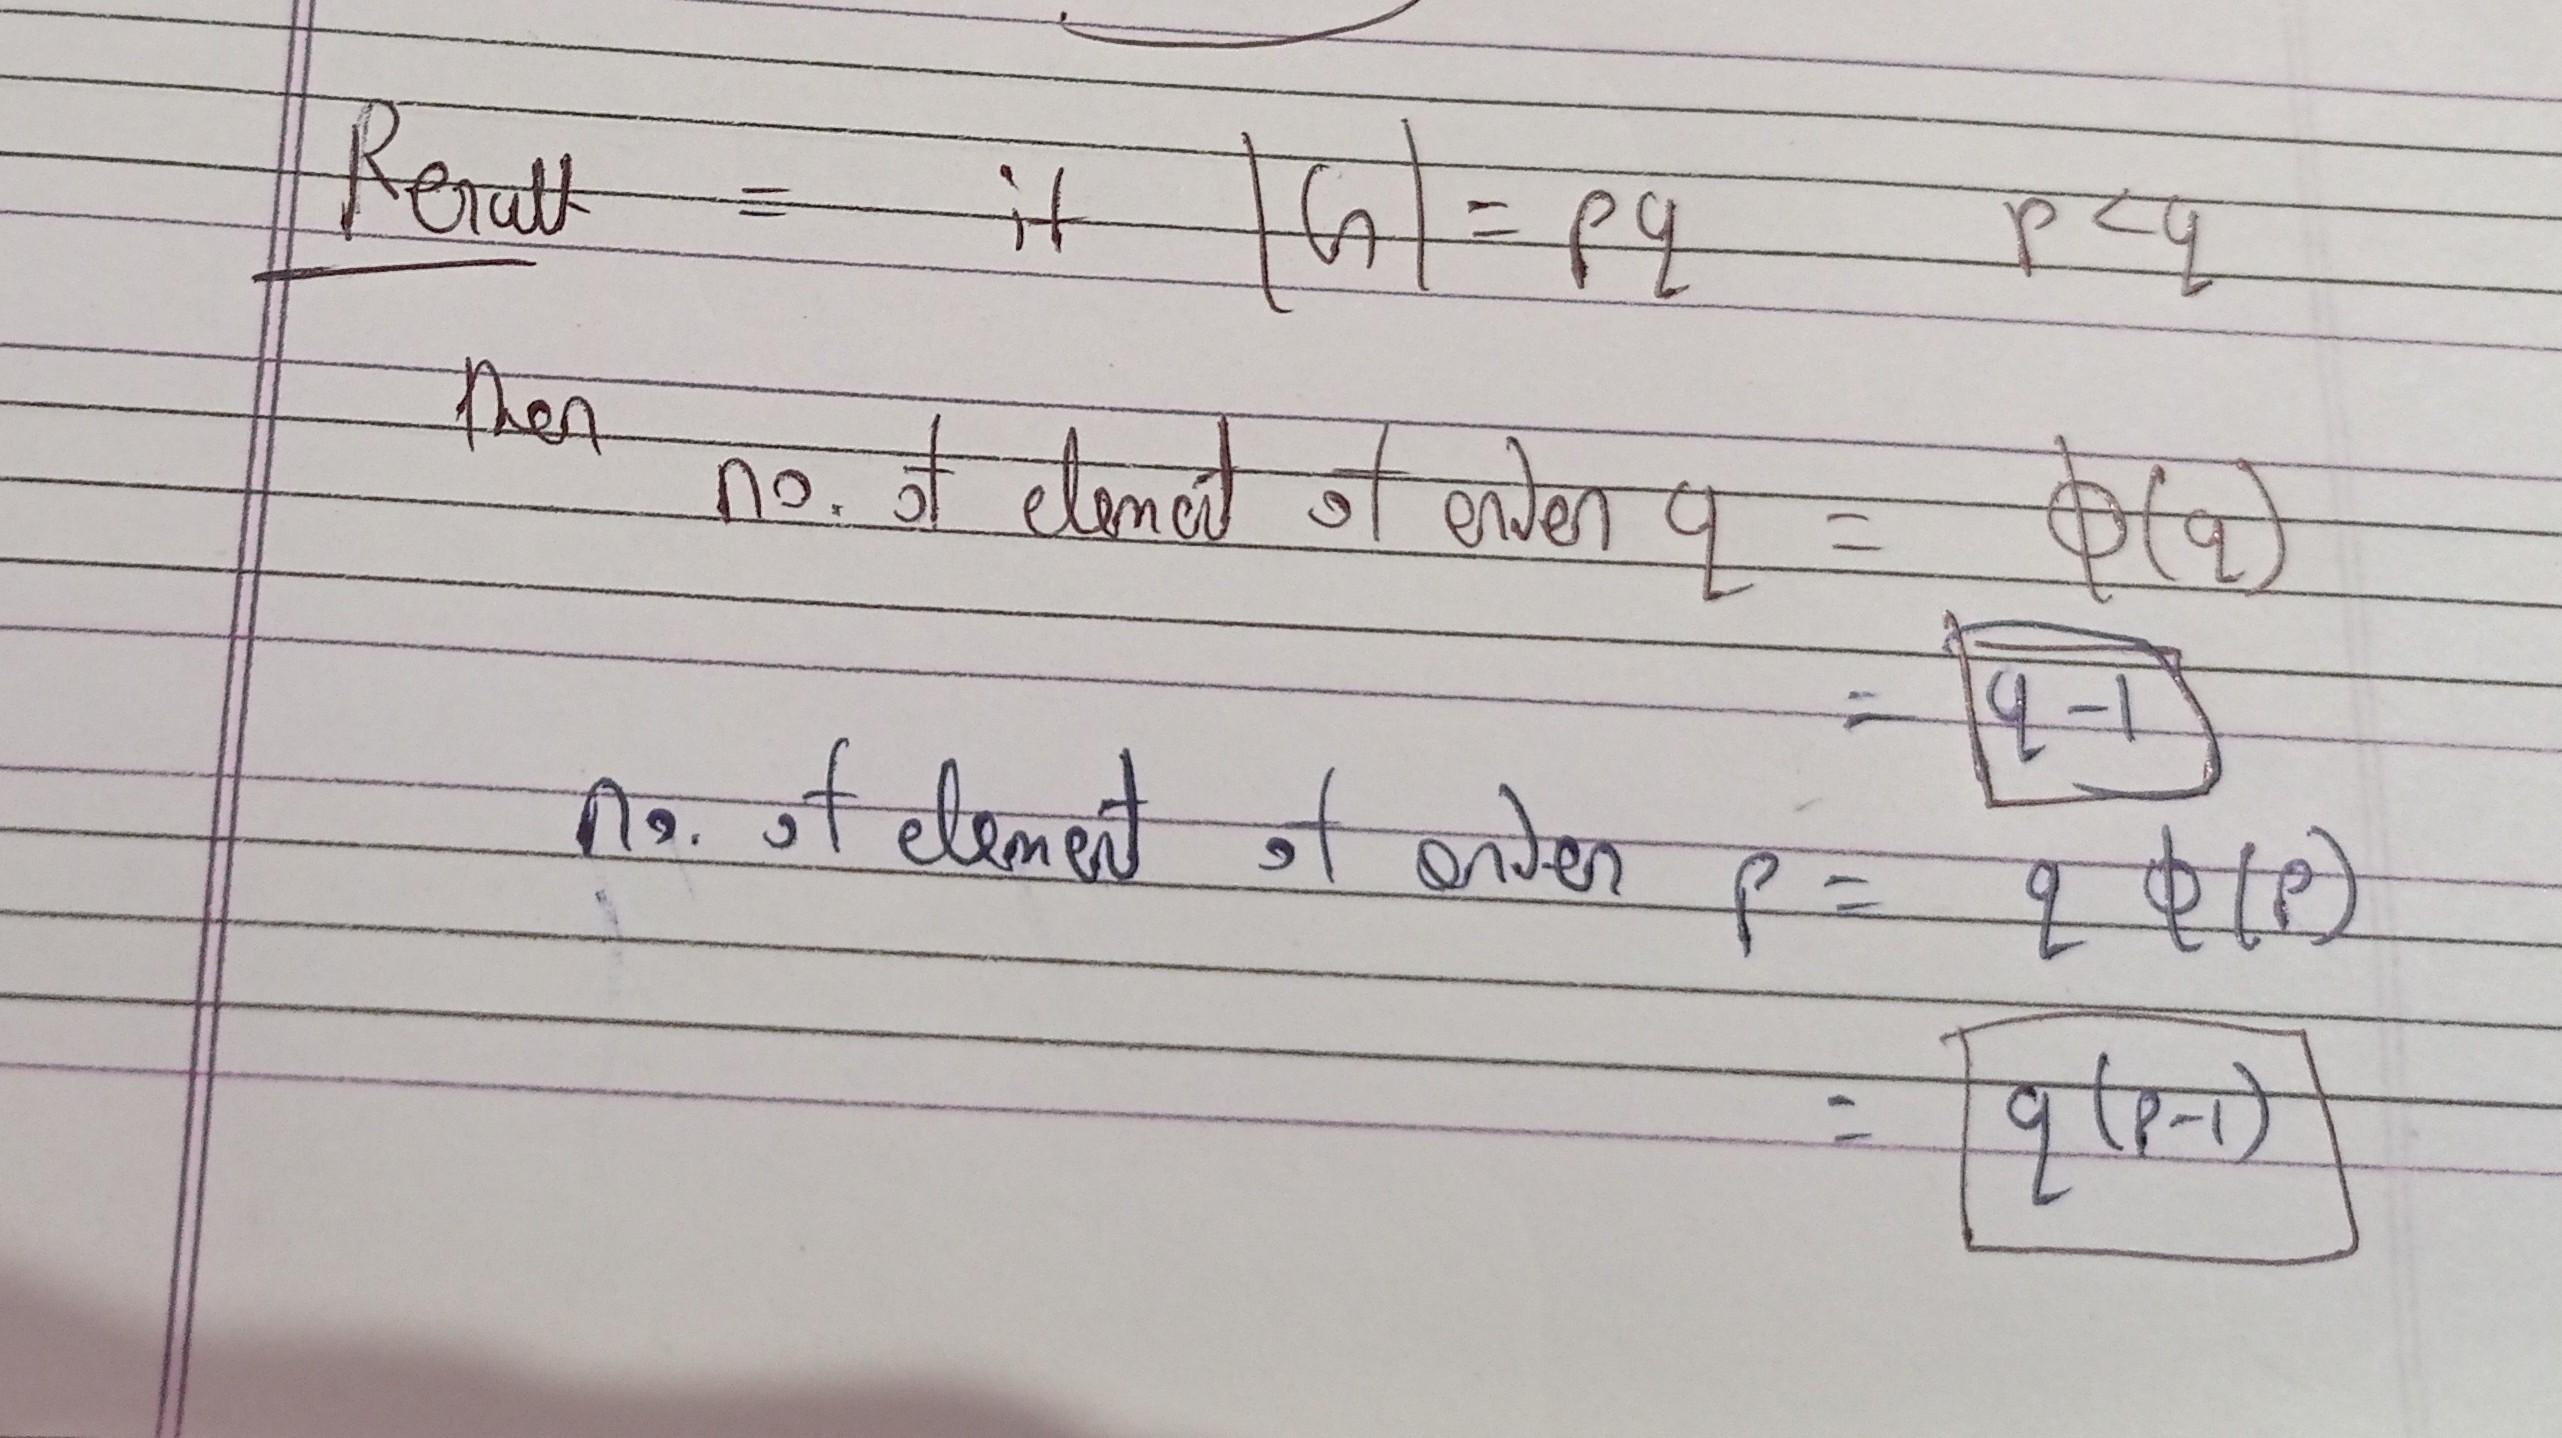 Result = if |G| = pq p<q
Then
no. of element of order q = ϕ(q)
= q-1
no. of element of order p = q ϕ(p)
= q(p-1)